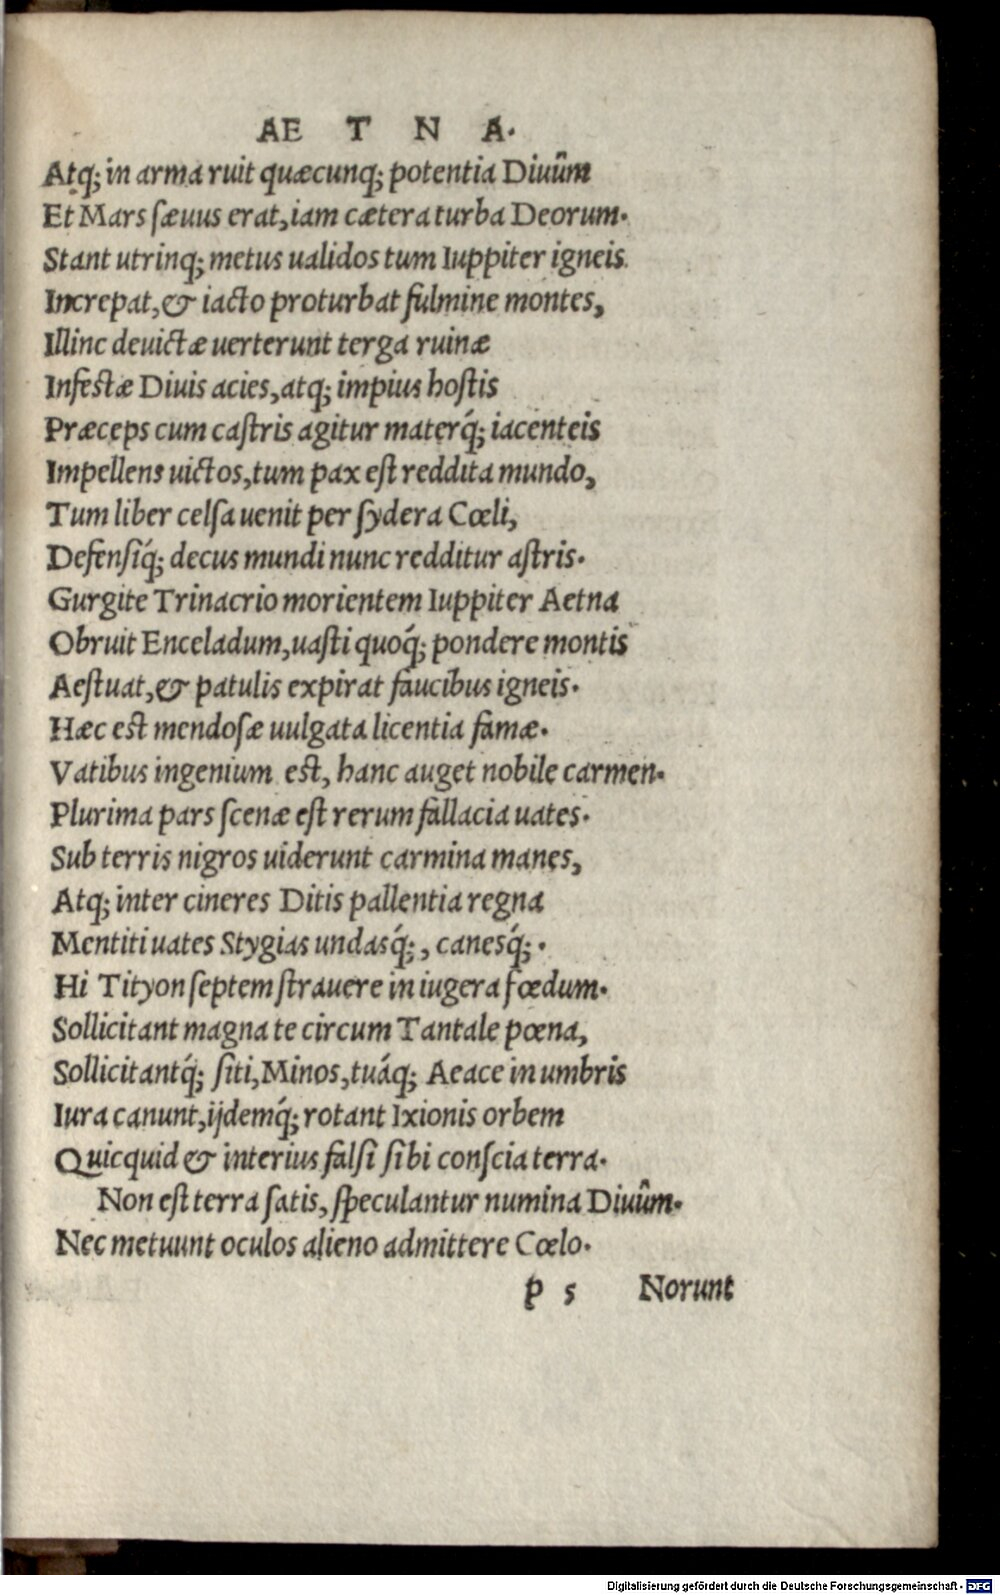 AE T N A.
Atq; in arma ruit quæcunq; potentia Diuûm
Et Mars ſæuus erat, iam cætera turba Deorum.
Stant utrinq; metus ualidos tum Iuppiter igneis.
Increpat, & iacto proturbat fulmine montes,
Illinc deuictæ uerterunt terga ruinæ
Infeſtæ Diuis acies, atq; impius hoſtis
Præceps cum caſtris agitur materq́; iacenteis
Impellens uictos, tum pax eſt reddita mundo,
Tum liber celſa uenit per ſydera Cœli,
Defenſiq́; decus mundi nunc redditur aſtris.
Gurgite Trinacrio morientem Iuppiter Aetna
Obruit Enceladum, uaſti quoq́; pondere montis
Aeſtuat, & patulis expirat faucibus igneis.
Hæc eſt mendoſæ uulgata licentia famæ.
Vatibus ingenium eſt, hanc auget nobile carmen.
Plurima pars ſcenæ eſt rerum fallacia uates.
Sub terris nigros uiderunt carmina manes,
Atq; inter cineres Ditis pallentia regna
Mentiti uates Stygias undasq́;, canesq́;.
Hi Tityon ſeptem ſtrauere in iugera fœdum.
Sollicitant magna te circum Tantale pœna,
Sollicitantq́; ſiti, Minos, tuáq; Aeace in umbris
Iura canunt, ijdemq́; rotant Ixionis orbem
Quicquid & interius falſi ſibi conſcia terra.
Non eſt terra ſatis, ſpeculantur numina Diuûm.
Nec metuunt oculos alieno admittere Cœlo.
p 5 Norunt
Digitalisierung gefördert durch die Deutsche Forschungsgemeinschaft - DFG